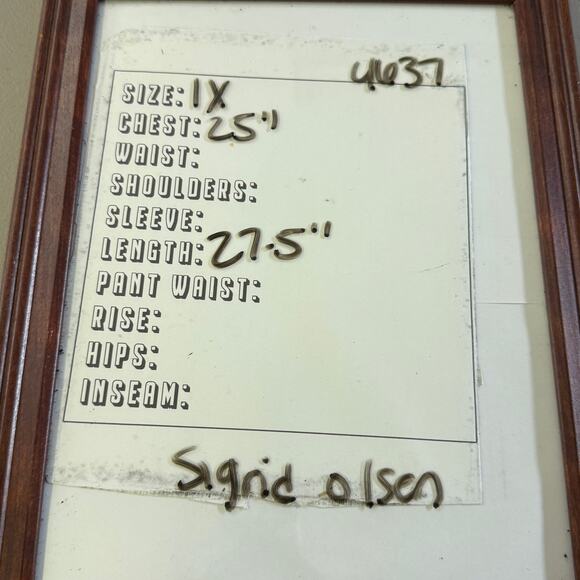 4637
SIZE: 1X
CHEST: 25"
WAIST:
SHOULDERS:
SLEEVE:
LENGTH: 27.5"
PANT WAIST:
RISE:
HIPS:
INSEAM:
Sigrid olsen